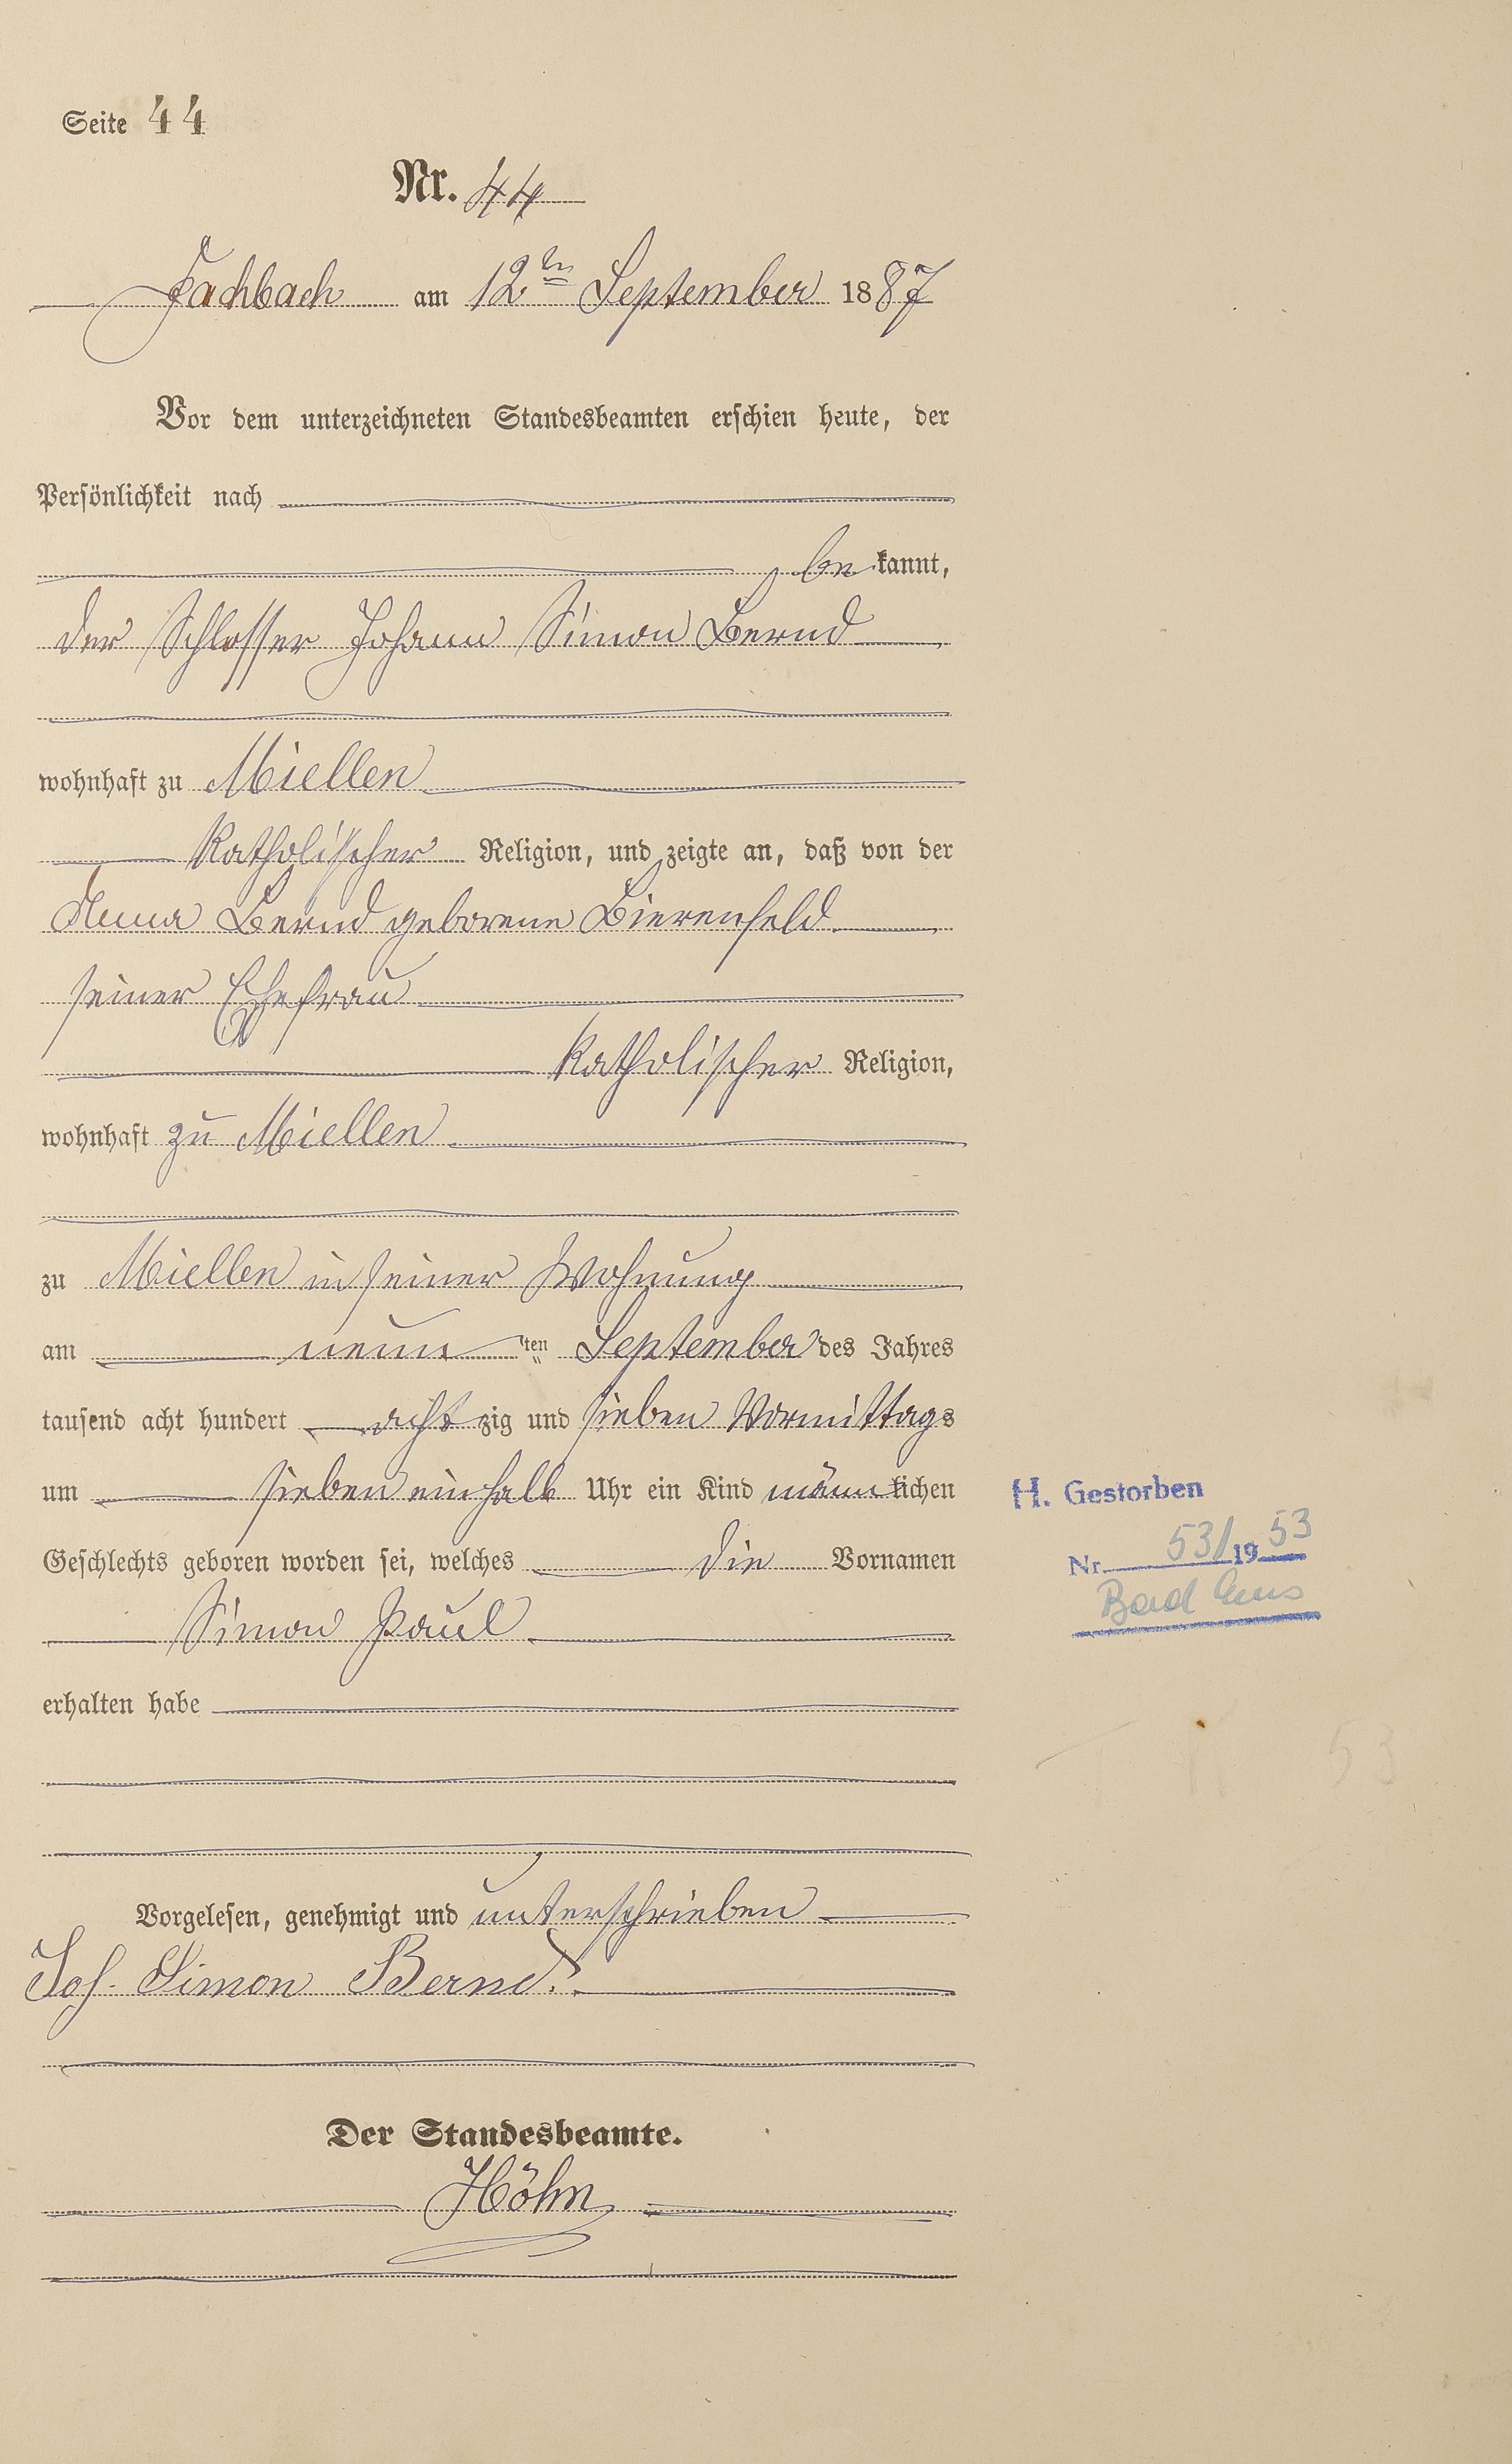 Seite 44
Nr. 44
Fachbach am 12ten September 1887
Vor dem unterzeichneten Standesbeamten erschien heute, der
Persönlichkeit nach
be kannt,
der Schlosser Johann Simon Bernd
wohnhaft zu Miellen
katholischer Religion, und zeigte an, daß von der
Anna Bernd geborene Bierenfeld
seiner Ehefrau
katholischer Religion,
wohnhaft zu Miellen
zu Miellen in seiner Wohnung
am neun ten September des Jahres
tausend acht hundert acht zig und sieben Vormittags
um sieben einhalb Uhr ein Kind männlichen
Geschlechts geboren worden sei, welches die Vornamen
Simon Paul
erhalten habe
Vorgelesen, genehmigt und unterschrieben
Joh. Simon Bernd.
Der Standesbeamte.
Höhn
H. Gestorben
Nr. 53/1953
Bad Ems